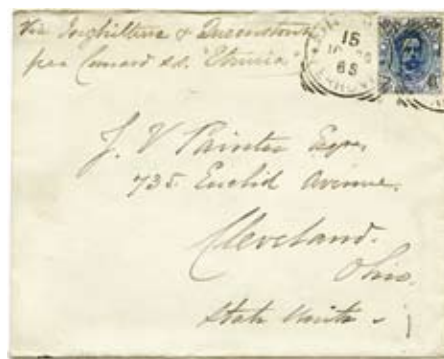 Via Inghilterra & Queenstown
per Cunard s.s. "Etruria"
15
65
J. V. Painter Esqre
735. Euclid Avenue.
Cleveland.
Ohio.
State Uniti